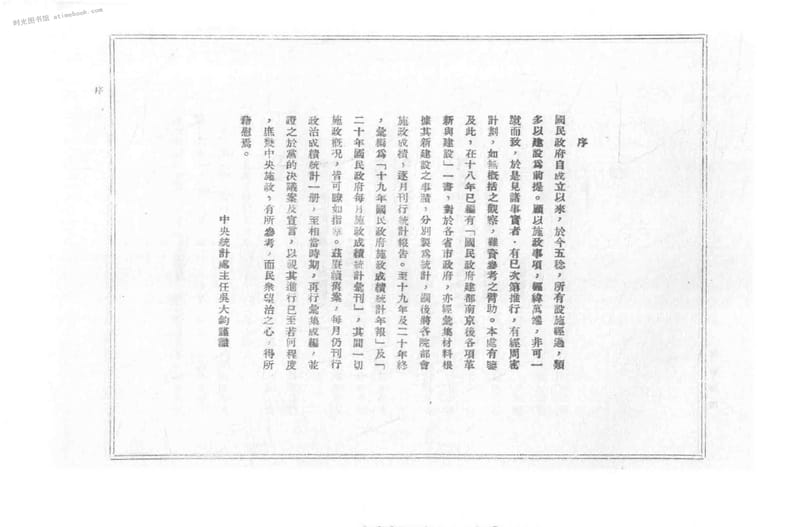 时光图书馆 atimebook.com
序
序
國民政府自成立以來，於今五稔，所有設施經過，類
多以建設為前提。顧以施政事項，經緯萬端，非可一
蹴而致，於是見諸事實者，有已次第推行，有經周密
計劃，如無概括之觀察，難資參考之臂助。本處有鑒
及此，在十八年已編有「國民政府建都南京後各項革
新與建設」一書，對於各省市政府，亦經彙集材料根
據其新建設之事蹟，分別製為統計，嗣後將各院部會
施政成績，逐月刊行統計報告。至十九年及二十年終
，彙編為「十九年國民政府施政成績統計年報」及「
二十年國民政府每月施政成績統計彙刊」，其間一切
施政概況，皆可瞭如指掌。茲賡續舊案，每月仍刊行
政治成績統計一册，至相當時期，再行彙集成編，並
證之於黨的決議案及宣言，以視其進行已至若何程度
，庶幾中央施政，有所參考，而民衆望治之心，得所
藉慰焉。
中央統計處主任吳大鈞謹識